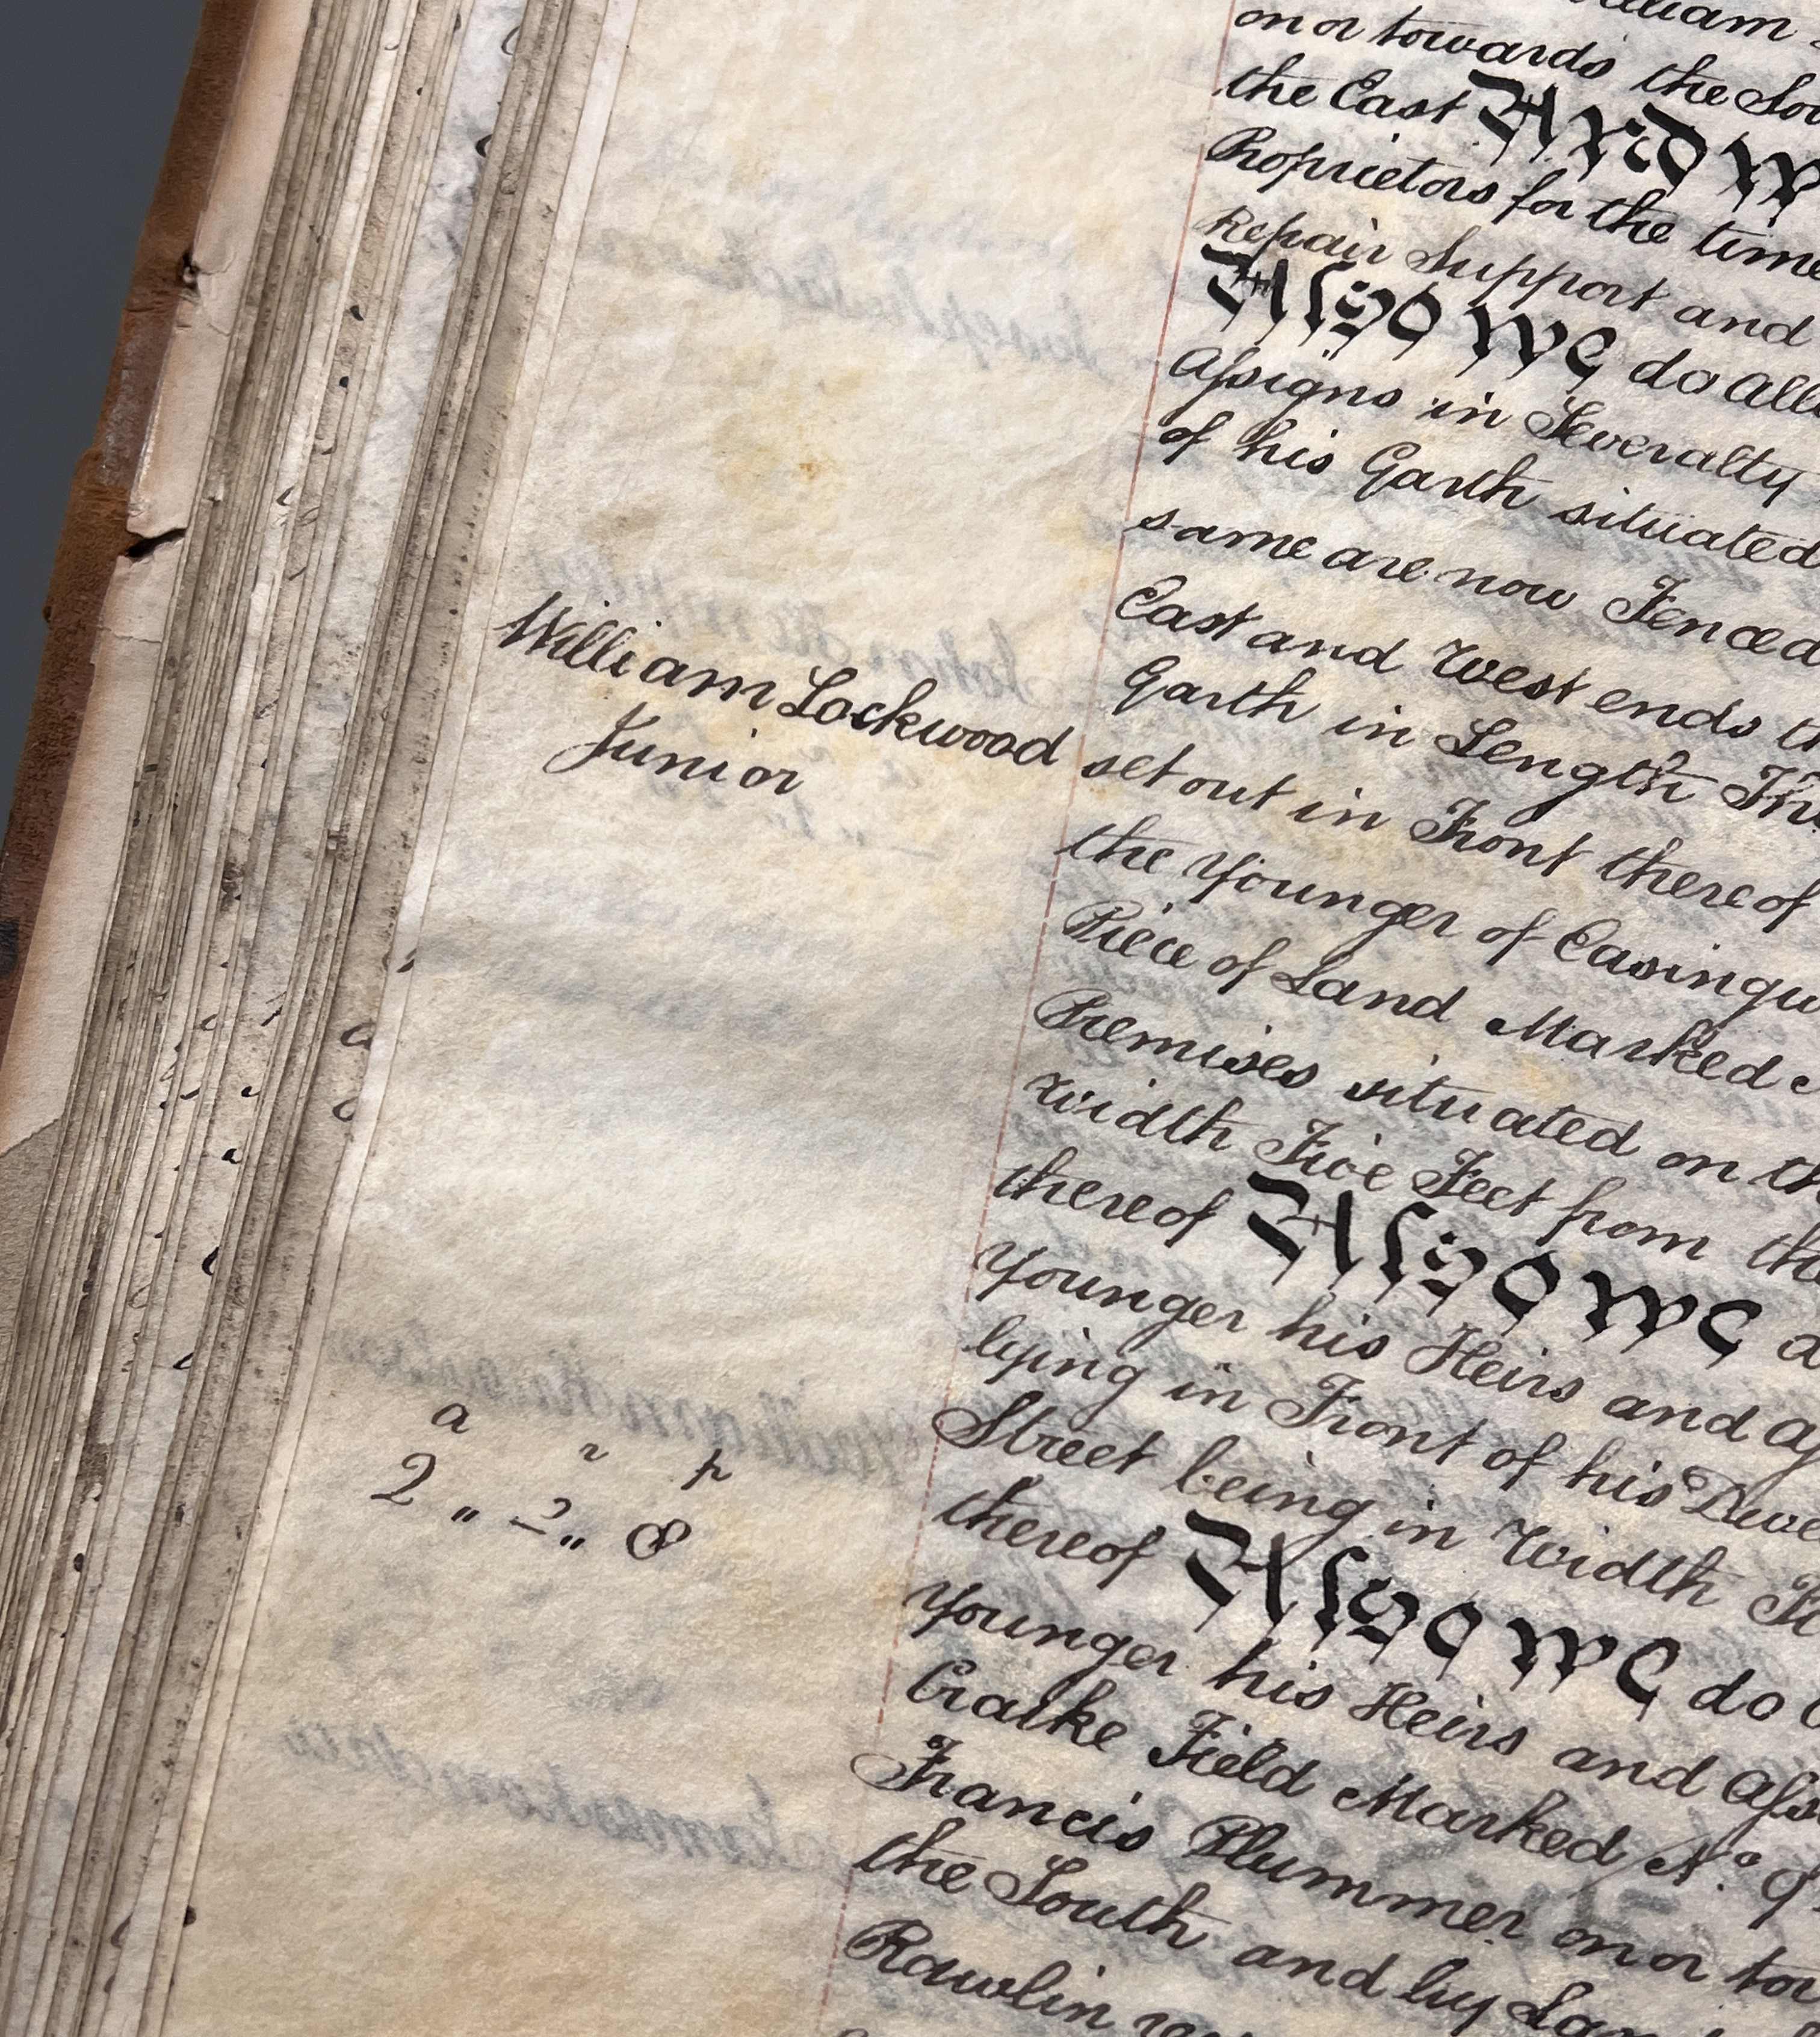 on or towards the Sou
the East And W
Proprietors for the time
Repair Support and
Also We do All
Assigns in Severalty
of his Garth situated
same are now Fenced
East and West ends th
Garth in Length Th
William Lockwood
Junior
set out in Front thereof
the Younger of Easingw
Piece of Land Marked
Premises situated on th
Width Five Feet from th
thereof Also We a
Younger his Heirs and Ass
lying in Front of his Dwe
Street being in Width Fi
a r p
2 „ 2 „ 8
thereof Also We do
Younger his Heirs and Ass
Craike Field Marked No. 9
Francis Plummer on or tow
the South and by Lan
Rawlin